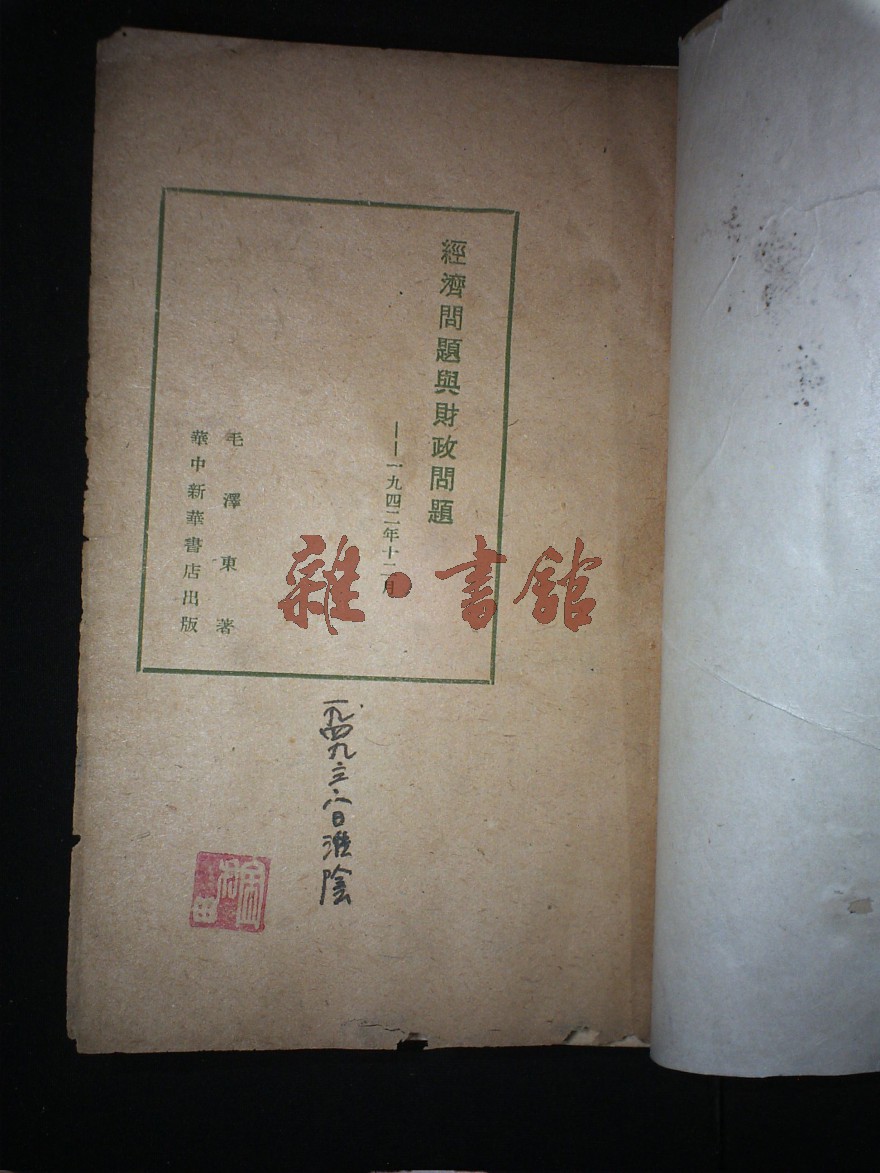 經濟問題與財政問題
——一九四二年十二月
毛澤東著
華中新華書店出版
一九四九、三、八日淮陰
雜·書館